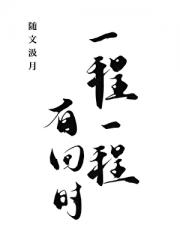 一程一程
有回时
随文汲月